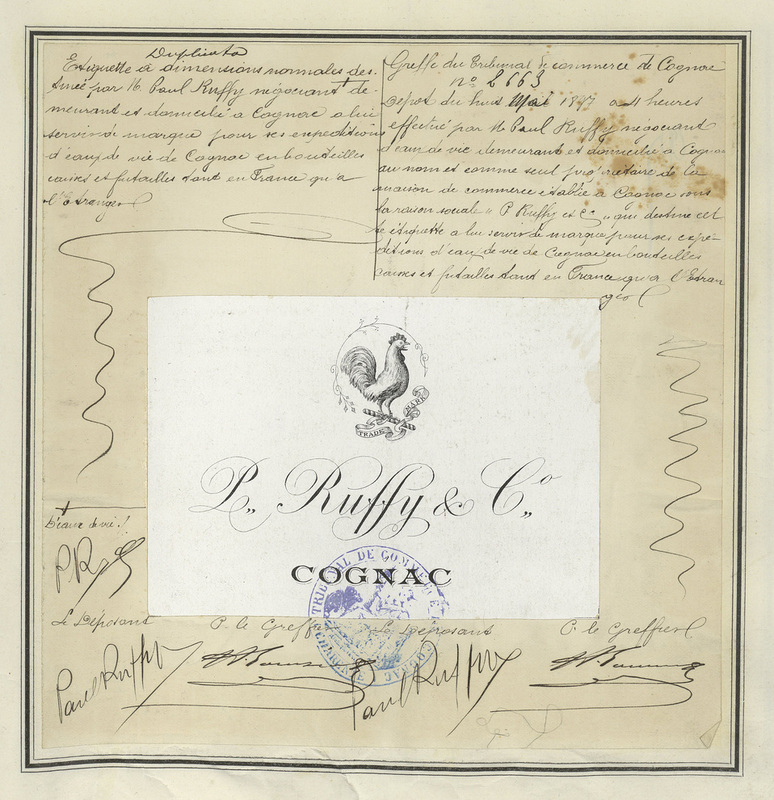 Duplicata
Etiquette à dimensions normales des-
tinée par M. Paul Ruffy négociant + de-
meurant et domicilié à Cognac a lui
servir de marque pour ses expéditions
d'eau de vie de Cognac en bouteilles
caisses et futailles tant en France qu'a
l'Etranger
Greffe du Tribunal de commerce de Cognac
no 2663
Dépot du huit Mai 1897 a 4 heures
effectué par M. Paul Ruffy négociant
d'eau de vie demeurant et domicilié a Cognac
au nom et comme seul propriétaire de la
maison de commerce établie a Cognac sous
la raison sociale "P Ruffy et Co" qui destine cet
te étiquette a lui servir de marque pour ses expé-
ditions d'eau de vie de Cognac en bouteilles
caisses et futailles tant en France qu'a l'Etran
ger
TRADE MARK
P. Ruffy & Co
COGNAC
TRIBUNAL DE COMMERCE
COGNAC
+
d'eau de vie
PR
Le Déposant
P. le Greffier
Le Déposant
P. le Greffier
Paul Ruffy
Paul Ruffy